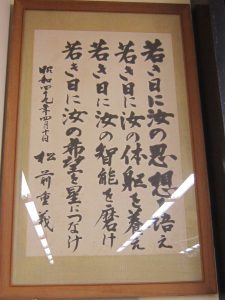 若き日に汝の思想を培え
若き日に汝の体躯を養え
若き日に汝の智能を磨け
若き日に汝の希望を星につなげ
昭和四十九年四月十日
松前重義